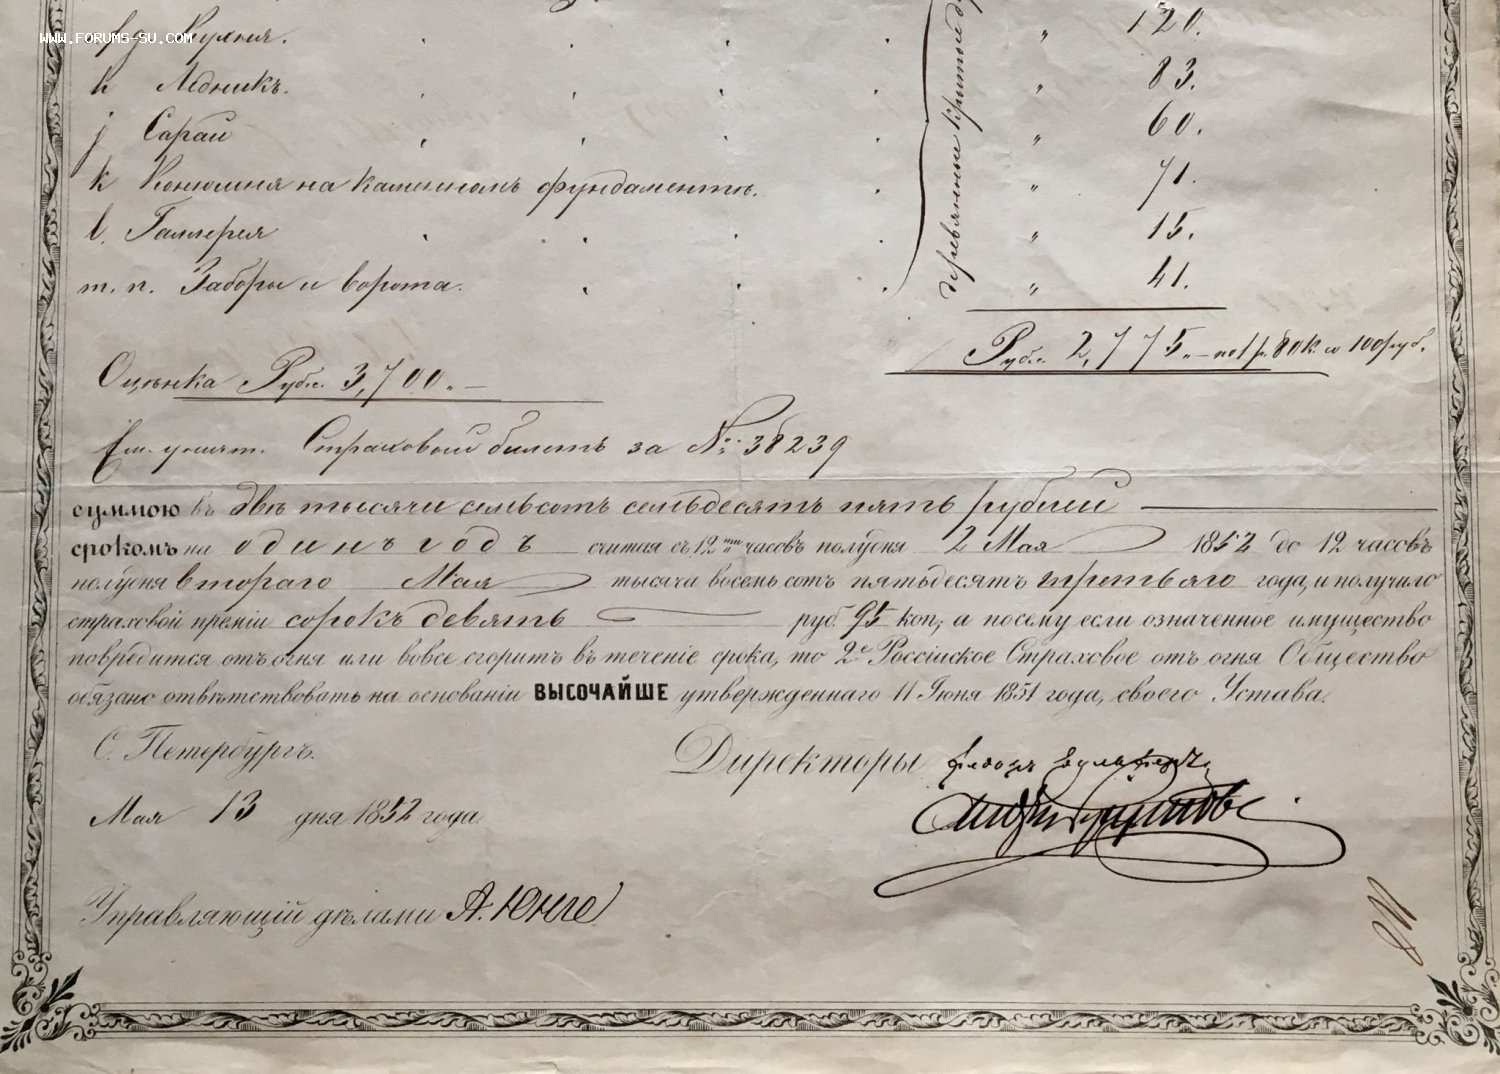 www.forums-su.com
f g Кухня. " 120.
h Ледникъ. " 83.
j Сараи " 60.
k Конюшня на каменномъ фундаментѣ. " 71.
l. Галлерея " 15.
m. n. Заборы и ворота. " 41.
деревянные крытые
Рубл. 2,775. — по 1 р. 80 к. со 100 руб.
Оцѣнка Рубл. 3,700. —
Страховой билетъ за № 38239
суммою въ двѣ тысячи семьсотъ семьдесятъ пять рублей
срокомъ на одинъ годъ считая съ 12ти часовъ полудня 2 Мая 1852 до 12 часовъ
полудня втораго Мая тысяча восемьсотъ пятьдесятъ третьяго года, и получило
страховой преміи сорокъ девять руб. 95 коп; а посему если означенное имущество
повредится отъ огня или вовсе сгоритъ въ теченіе срока, то 2е Россійское Страховое отъ огня Общество
обязано отвѣтствовать на основаніи ВЫСОЧАЙШЕ утвержденнаго 11 Іюня 1851 года, своего Устава.
С. Петербургъ.
Директоры
Мая 13 дня 1852 года
Управляющій дѣлами А. Юнге